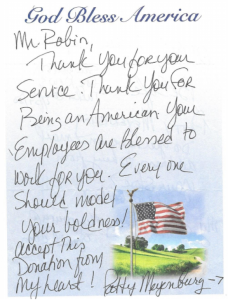 God Bless America
Mr Robin,
Thank you for your
Service. Thank you For
Being an American your
Employees are Blessed to
work for you. Everyone
Should model
your boldness!
accept This
Donation from
My heart! Patty Meyenburg →